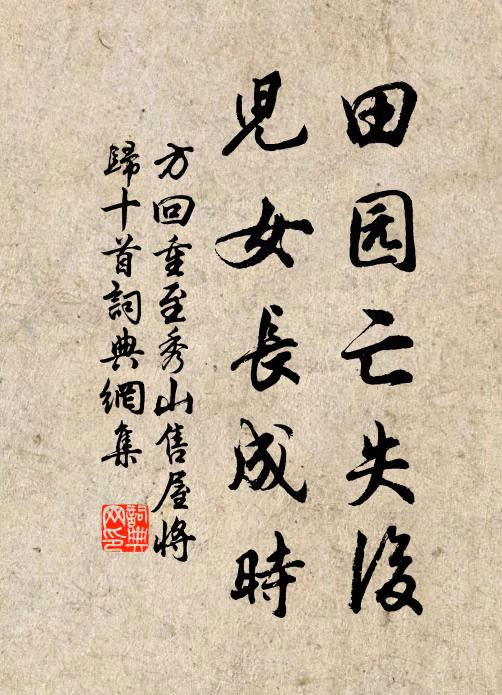 田园亡失後
兒女長成時
方回重至秀山售屋將
歸十首詞典網集
詞典
网印